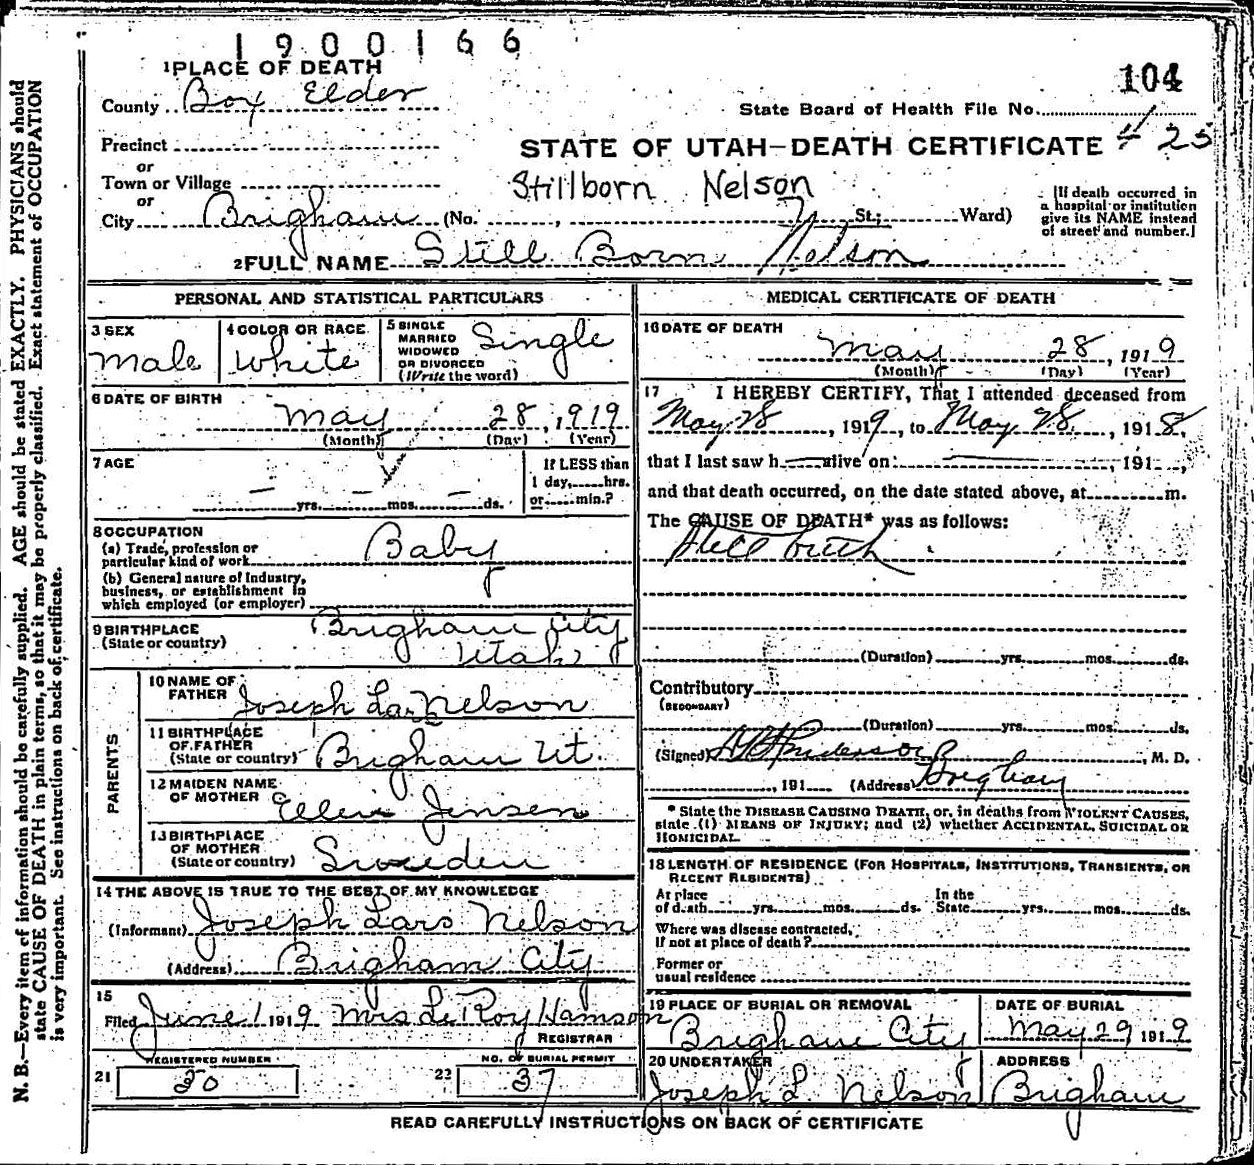 1900166
1 PLACE OF DEATH
104
County Box Elder
State Board of Health File No.
Precinct
STATE OF UTAH—DEATH CERTIFICATE # 25
or
Town or Village
Stillborn Nelson
or
City Brigham (No. , St.; Ward)
[If death occurred in
a hospital or institution
give its NAME instead
of street and number.]
2 FULL NAME Still Born Nelson
PERSONAL AND STATISTICAL PARTICULARS
3 SEX
Male
4 COLOR OR RACE
White
5 SINGLE
MARRIED
WIDOWED
OR DIVORCED
(Write the word)
Single
6 DATE OF BIRTH
May 28, 1919
(Month) (Day) (Year)
7 AGE
— yrs. — mos. — ds.
If LESS than
1 day, hrs.
or min.?
8 OCCUPATION
(a) Trade, profession or
particular kind of work Baby
(b) General nature of Industry,
business, or establishment in
which employed (or employer)
9 BIRTHPLACE
(State or country)
Brigham City
Utah
PARENTS
10 NAME OF
FATHER Joseph Lars Nelson
11 BIRTHPLACE
OF FATHER
(State or country) Brigham Ut.
12 MAIDEN NAME
OF MOTHER Ellen Jensen
13 BIRTHPLACE
OF MOTHER
(State or country) Sweden
14 THE ABOVE IS TRUE TO THE BEST OF MY KNOWLEDGE
(Informant) Joseph Lars Nelson
(Address) Brigham City
15
Filed June 1 1919 Mrs Le Roy Hamson
REGISTRAR
REGISTERED NUMBER
21 20
NO. OF BURIAL PERMIT
22 37
MEDICAL CERTIFICATE OF DEATH
16 DATE OF DEATH
May 28, 1919
(Month) (Day) (Year)
17 I HEREBY CERTIFY, That I attended deceased from
May 28, 1919, to May 28, 1918,
that I last saw h alive on , 191 ,
and that death occurred, on the date stated above, at m.
The CAUSE OF DEATH* was as follows:
Still birth
(Duration) yrs. mos. ds.
Contributory
(SECONDARY)
(Duration) yrs. mos. ds.
(Signed) Anderson, M. D.
, 191 (Address) Brigham
* State the DISEASE CAUSING DEATH, or, in deaths from VIOLENT CAUSES,
state (1) MEANS OF INJURY; and (2) whether ACCIDENTAL, SUICIDAL OR
HOMICIDAL.
18 LENGTH OF RESIDENCE (FOR HOSPITALS, INSTITUTIONS, TRANSIENTS, OR
RECENT RESIDENTS)
At place
of death yrs. mos. ds.
In the
State yrs. mos. ds.
Where was disease contracted,
if not at place of death?
Former or
usual residence
19 PLACE OF BURIAL OR REMOVAL
Brigham City
DATE OF BURIAL
May 29 1919
20 UNDERTAKER
Joseph L. Nelson
ADDRESS
Brigham
READ CAREFULLY INSTRUCTIONS ON BACK OF CERTIFICATE
N. B.—Every item of information should be carefully supplied. AGE should be stated EXACTLY. PHYSICIANS should
state CAUSE OF DEATH in plain terms, so that it may be properly classified. Exact statement of OCCUPATION
is very important. See instructions on back of certificate.